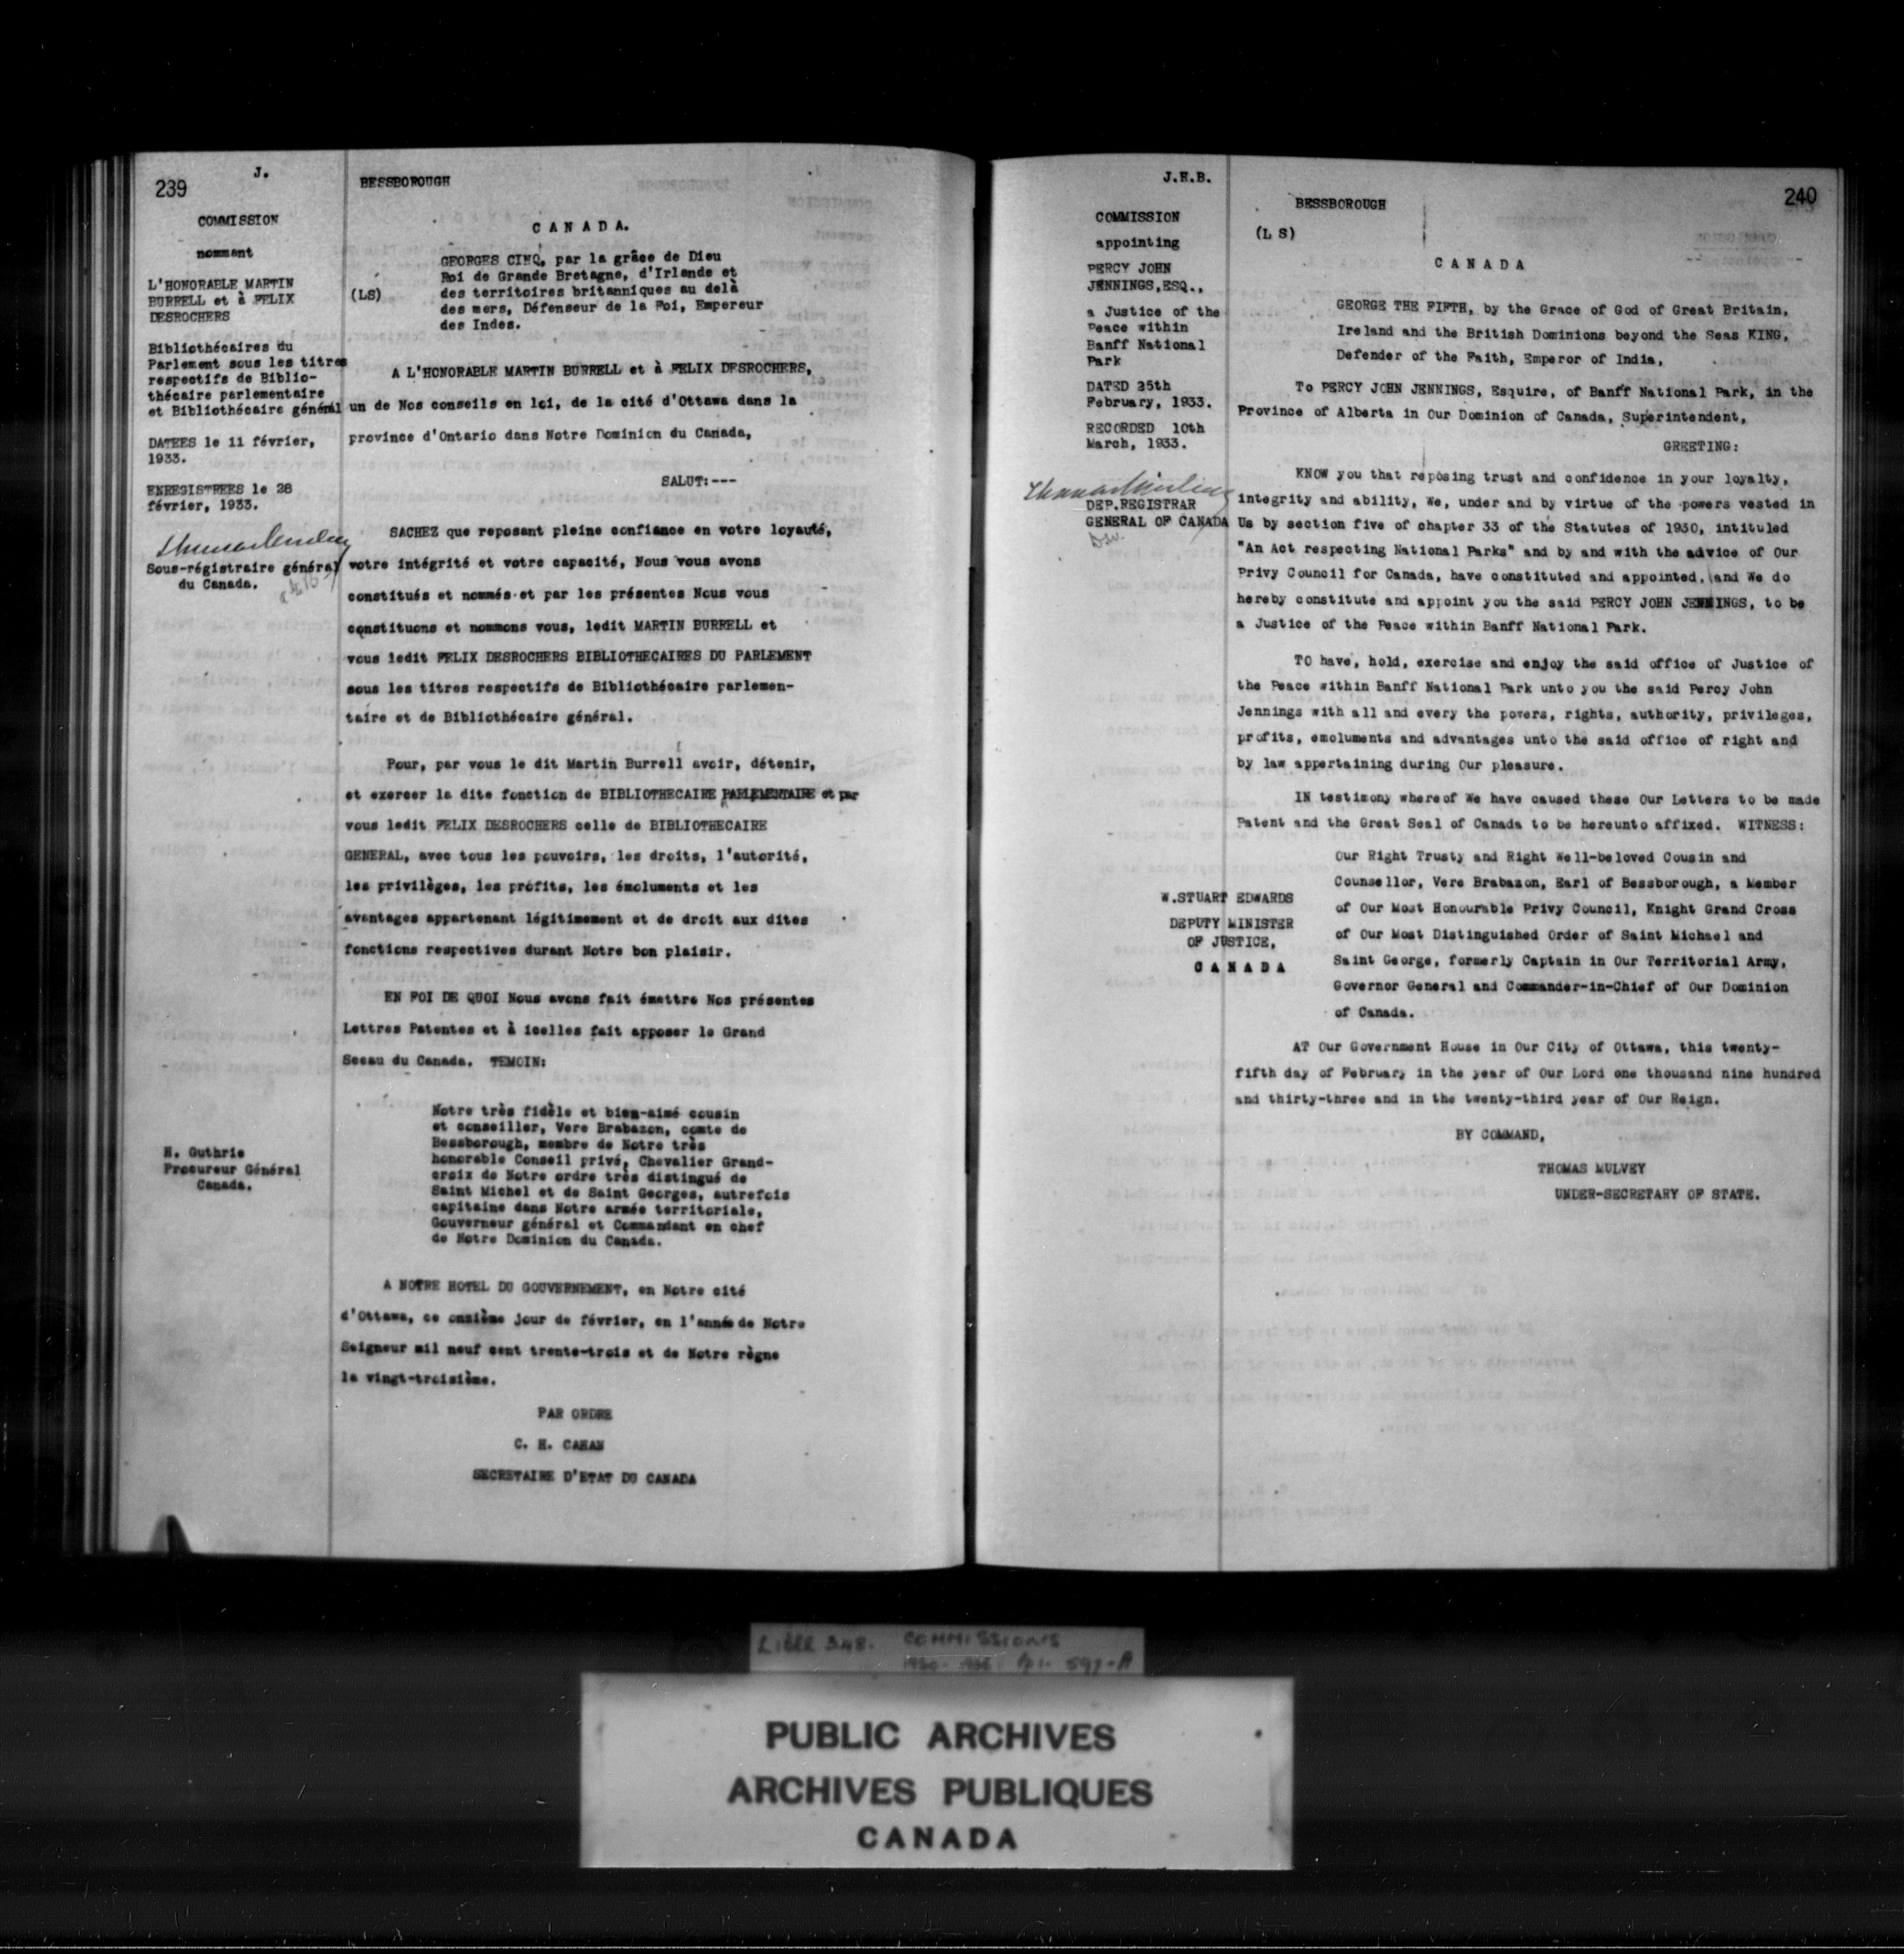 239
J.
COMMISSION
nommant
L'HONORABLE MARTIN
BURRELL et à FELIX
DESROCHERS
Bibliothécaires du
Parlement sous les titres
respectifs de Biblio-
thécaire parlementaire
et Bibliothécaire général
DATEES le 11 février,
1933.
ENREGISTREES le 28
février, 1933.
Thomas Mulvey
Sous-régistraire général
du Canada.
H. Guthrie
Procureur Général
Canada.
BESSBOROUGH
CANADA.
(LS)
GEORGES CINQ, par la grâce de Dieu
Roi de Grande Bretagne, d'Irlande et
des territoires britanniques au delà
des mers, Défenseur de la Foi, Empereur
des Indes.
A L'HONORABLE MARTIN BURRELL et à FELIX DESROCHERS,
un de Nos conseils en loi, de la cité d'Ottawa dans la
province d'Ontario dans Notre Dominion du Canada,
SALUT:---
SACHEZ que reposant pleine confiance en votre loyauté,
votre intégrité et votre capacité, Nous vous avons
constitués et nommés et par les présentes Nous vous
constituons et nommons vous, ledit MARTIN BURRELL et
vous ledit FELIX DESROCHERS BIBLIOTHECAIRES DU PARLEMENT
sous les titres respectifs de Bibliothécaire parlemen-
taire et de Bibliothécaire général.
Pour, par vous le dit Martin Burrell avoir, détenir,
et exercer la dite fonction de BIBLIOTHECAIRE PARLEMENTAIRE et par
vous ledit FELIX DESROCHERS celle de BIBLIOTHECAIRE
GENERAL, avec tous les pouvoirs, les droits, l'autorité,
les privilèges, les profits, les émoluments et les
avantages appartenant légitimement et de droit aux dites
fonctions respectives durant Notre bon plaisir.
EN FOI DE QUOI Nous avons fait émettre Nos présentes
Lettres Patentes et à icelles fait apposer le Grand
Sceau du Canada. TEMOIN:
Notre très fidèle et bien-aimé cousin
et conseiller, Vere Brabazon, comte de
Bessborough, membre de Notre très
honorable Conseil privé, Chevalier Grand-
croix de Notre ordre très distingué de
Saint Michel et de Saint Georges, autrefois
capitaine dans Notre armée territoriale,
Gouverneur général et Commandant en chef
de Notre Dominion du Canada.
A NOTRE HOTEL DU GOUVERNEMENT, en Notre cité
d'Ottawa, ce onzième jour de février, en l'année de Notre
Seigneur mil neuf cent trente-trois et de Notre règne
la vingt-troisième.
PAR ORDRE
C. H. CAHAN
SECRETAIRE D'ETAT DU CANADA
J.H.B.
240
COMMISSION
appointing
PERCY JOHN
JENNINGS,ESQ.,
a Justice of the
Peace within
Banff National
Park
DATED 25th
February, 1933.
RECORDED 10th
March, 1933.
Thomas Mulvey
DEP.REGISTRAR
GENERAL OF CANADA
W.STUART EDWARDS
DEPUTY MINISTER
OF JUSTICE,
CANADA
BESSBOROUGH
(L S)
CANADA
GEORGE THE FIFTH, by the Grace of God of Great Britain,
Ireland and the British Dominions beyond the Seas KING,
Defender of the Faith, Emperor of India,
To PERCY JOHN JENNINGS, Esquire, of Banff National Park, in the
Province of Alberta in Our Dominion of Canada, Superintendent,
GREETING:
KNOW you that reposing trust and confidence in your loyalty,
integrity and ability, We, under and by virtue of the powers vested in
Us by section five of chapter 33 of the Statutes of 1930, intituled
"An Act respecting National Parks" and by and with the advice of Our
Privy Council for Canada, have constituted and appointed, and We do
hereby constitute and appoint you the said PERCY JOHN JENNINGS, to be
a Justice of the Peace within Banff National Park.
TO have, hold, exercise and enjoy the said office of Justice of
the Peace within Banff National Park unto you the said Percy John
Jennings with all and every the powers, rights, authority, privileges,
profits, emoluments and advantages unto the said office of right and
by law appertaining during Our pleasure.
IN testimony whereof We have caused these Our Letters to be made
Patent and the Great Seal of Canada to be hereunto affixed. WITNESS:
Our Right Trusty and Right Well-beloved Cousin and
Counsellor, Vere Brabazon, Earl of Bessborough, a Member
of Our Most Honourable Privy Council, Knight Grand Cross
of Our Most Distinguished Order of Saint Michael and
Saint George, formerly Captain in Our Territorial Army,
Governor General and Commander-in-Chief of Our Dominion
of Canada.
AT Our Government House in Our City of Ottawa, this twenty-
fifth day of February in the year of Our Lord one thousand nine hundred
and thirty-three and in the twenty-third year of Our Reign.
BY COMMAND,
THOMAS MULVEY
UNDER-SECRETARY OF STATE.
LIBER 348. COMMISSIONS
PUBLIC ARCHIVES
ARCHIVES PUBLIQUES
CANADA